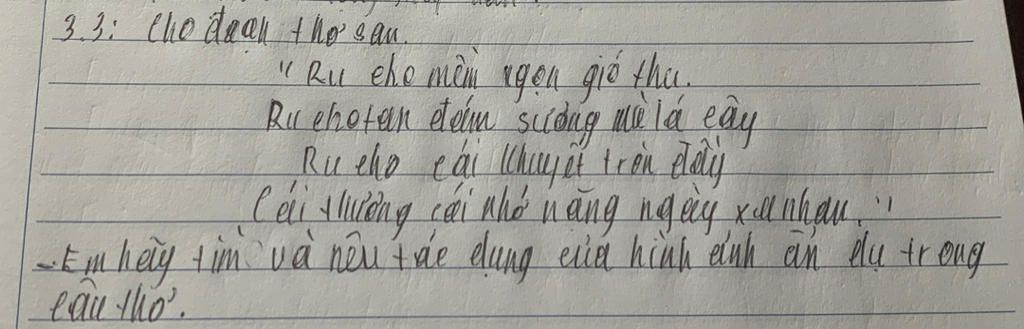 3.3: Cho đoạn thơ sau.
"Ru cho mềm ngọn gió thu.
Ru cho tan đám sương mù lá cây
Ru cho cái khuyết tròn đầy
Cái thương cái nhớ nặng ngày xa nhau."
- Em hãy tìm và nêu tác dụng của hình ảnh ẩn dụ trong
câu thơ.